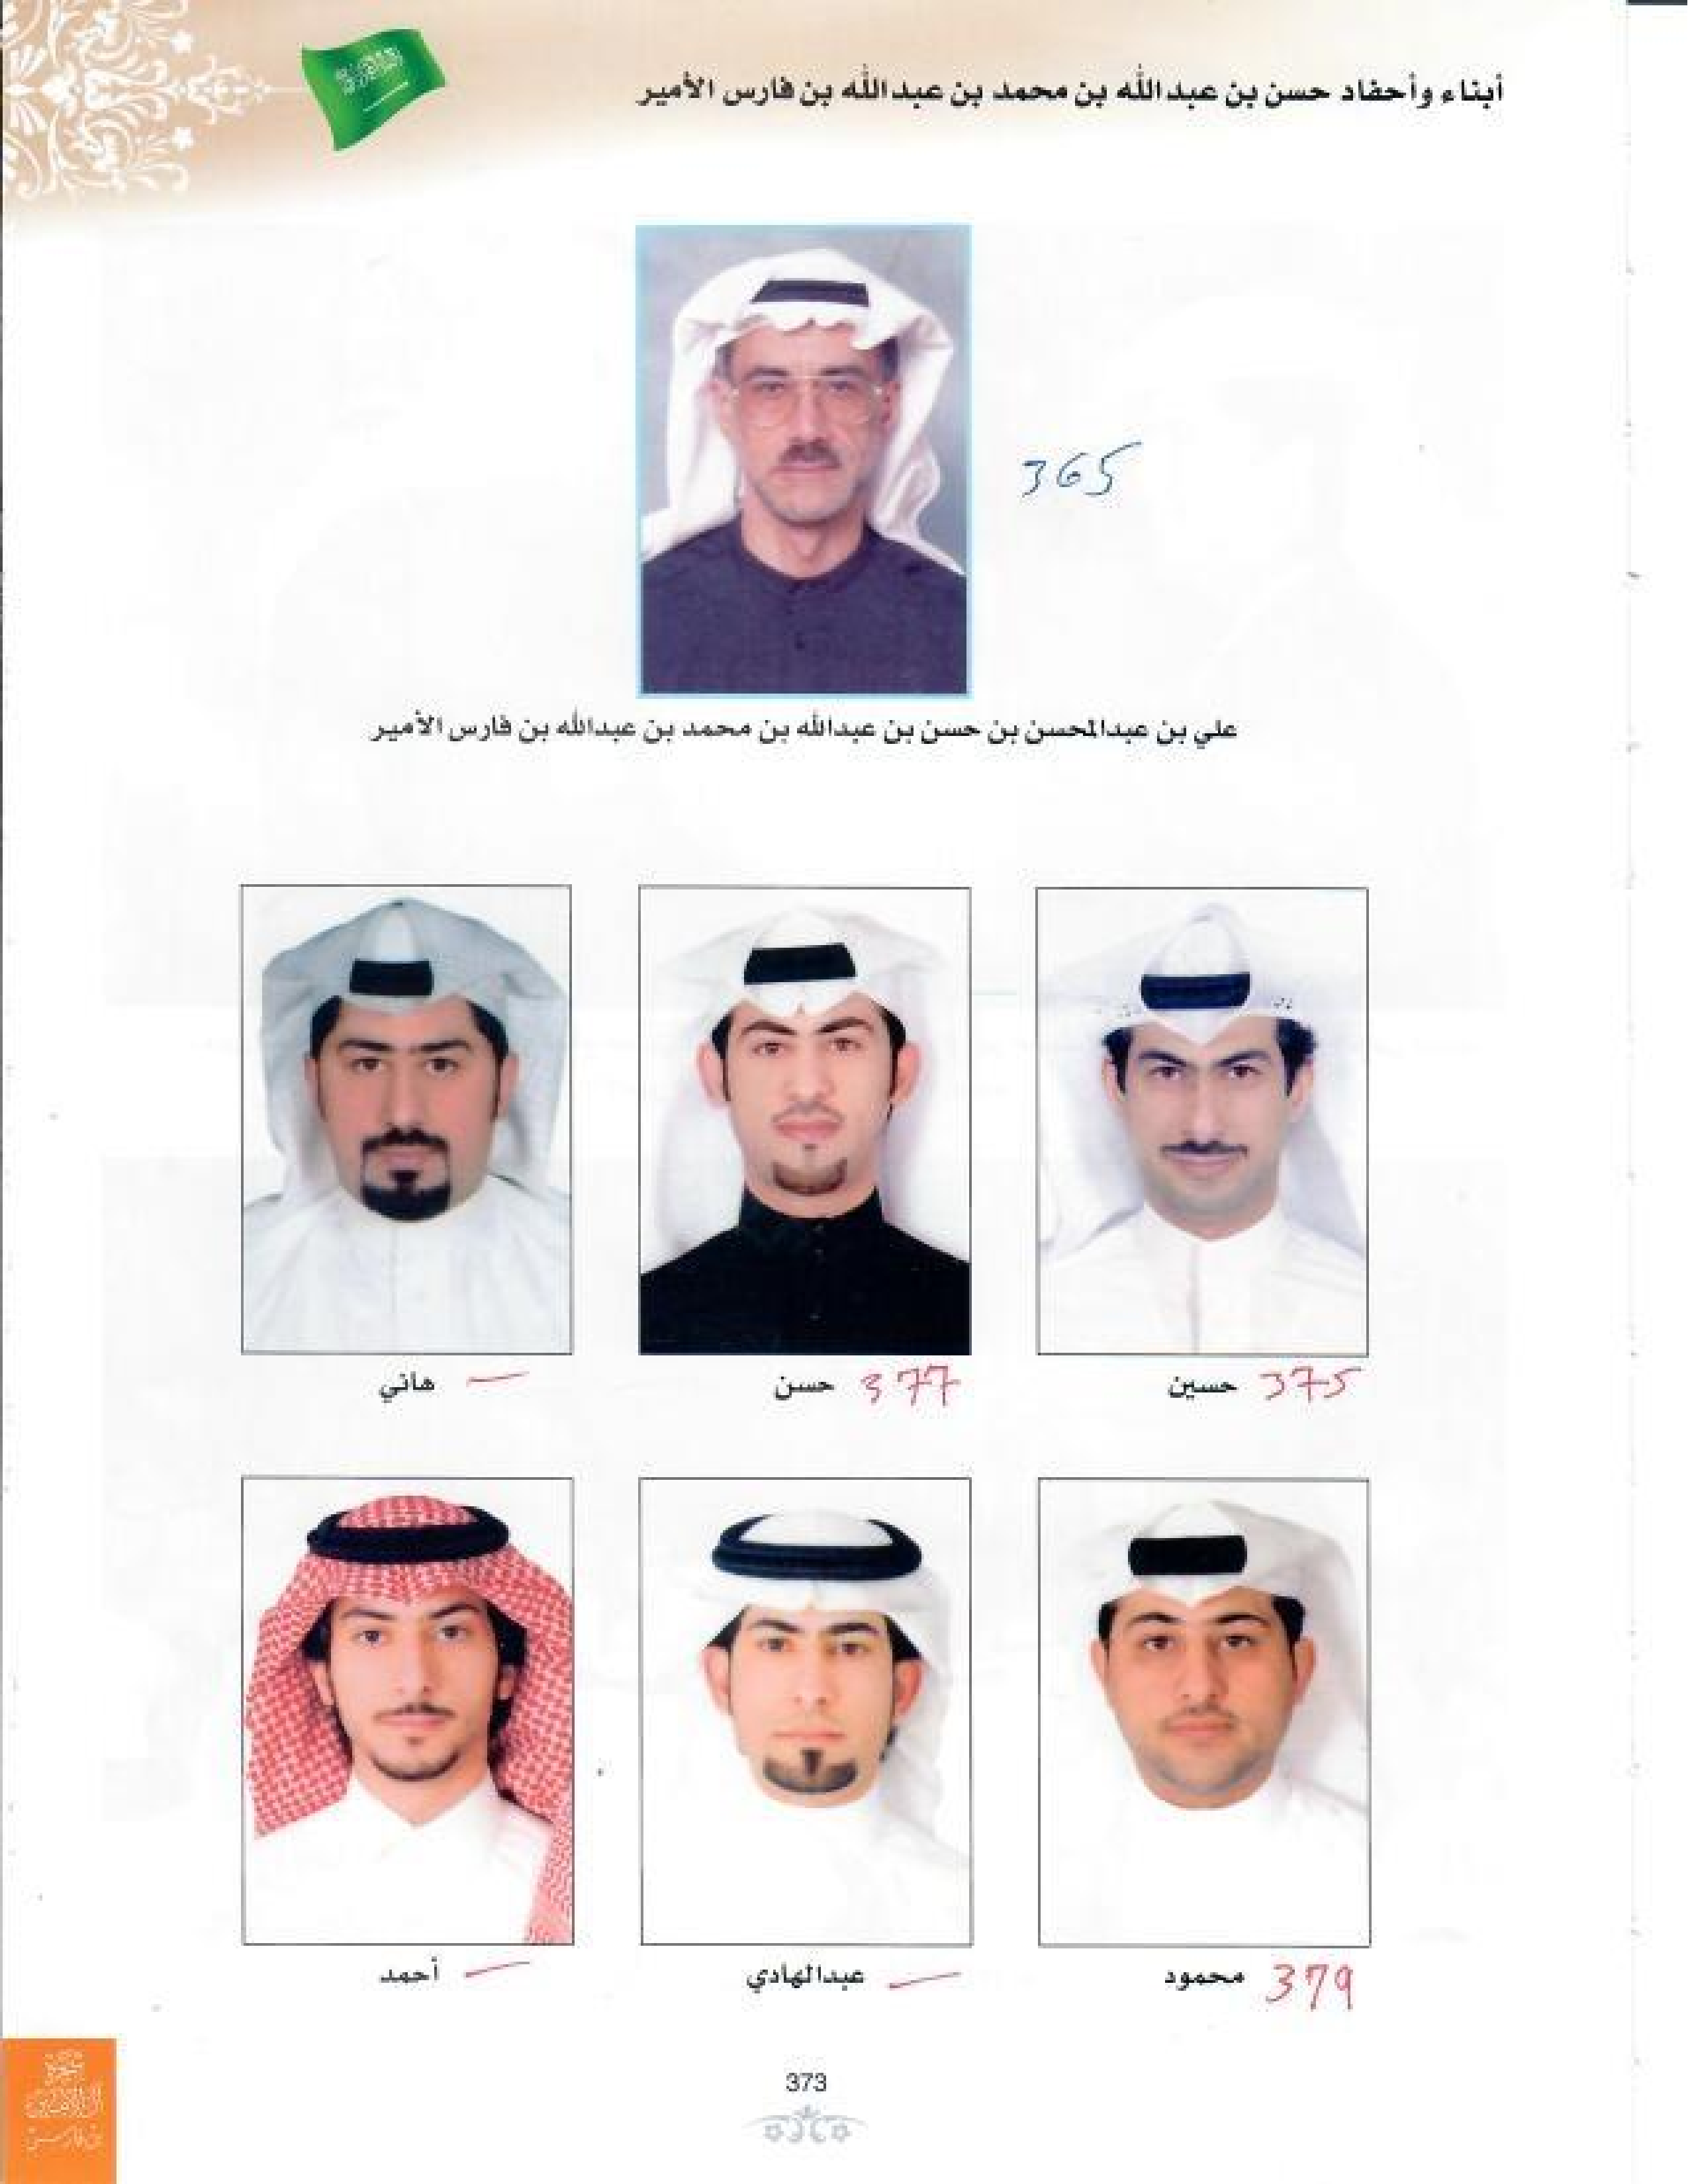 أبناء وأحفاد حسن بن عبدالله بن محمد بن عبدالله بن فارس الأمير
365
علي بن عبدالمحسن بن حسن بن عبدالله بن محمد بن عبدالله بن فارس الأمير
375 حسين
377 حسن
هاني
379 محمود
عبدالهادي
أحمد
373
بن فارس